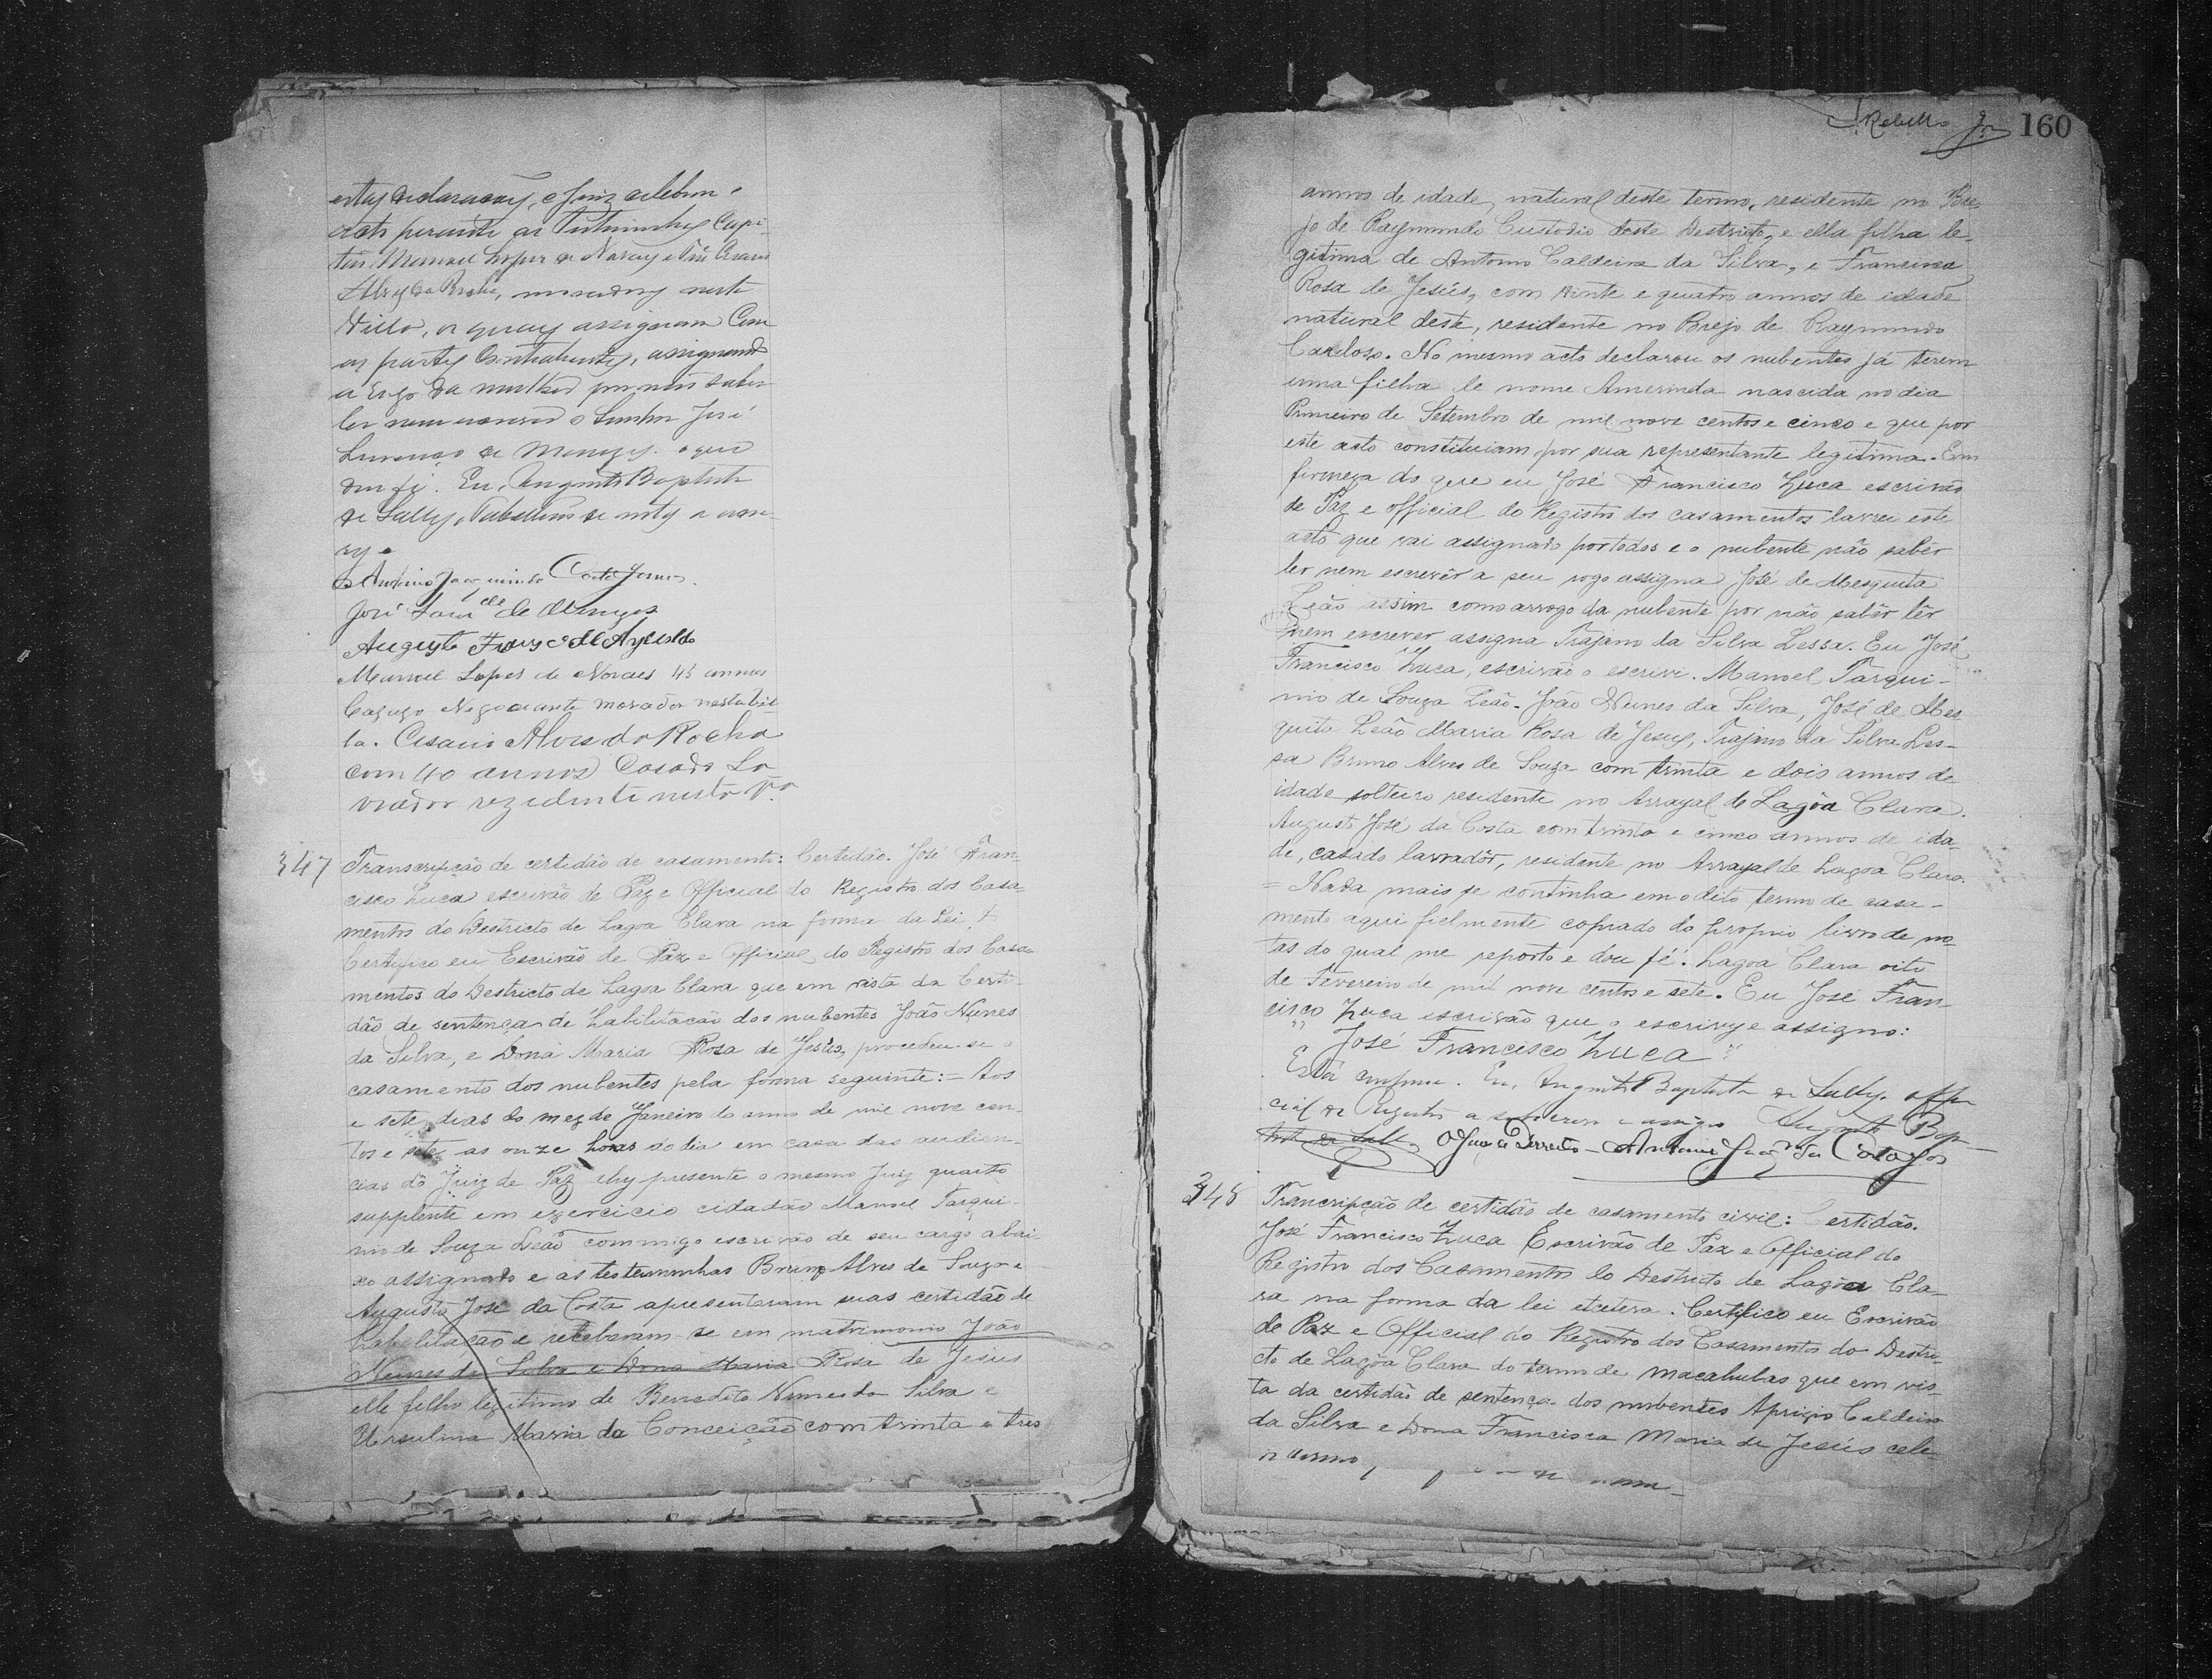 perante as Testimunhas Capi-
tão Manoel Lopes de Novaes e
Alves da Rocha, moradores nesta
Villa, os quaes assignam Com
as partes Contrahentes, assignando
a rogo da mulher por não saber
ler nem escrever o Senhor José
de Menezes. o que
dou fé. Eu, Augusto Baptista
de Tabellião de notas o escre-
vy.
José de Menezes
Augusto
Manoel Lopes de Novaes 45 annos
Negociante morador nesta Vil-
la. Cesario Alves da Rocha
com 40 annos Casado La
vrador rezidente nesta Va
347 Transcripção de certidão de casamento: Certidão. José Fran-
cisco Zuca escrivão de Paz e Official do Registro dos Casa-
mentos do Destricto de Lagoa Clara na forma da Lei,
Certifico eu Escrivão de Paz e Official do Registro dos Casa-
mentos do Destricto de Lagoa Clara que em vista da Certi-
dão de sentença de habilitação dos nubentes João Nunes
da Silva, e Dona Maria Rosa de Jesús, procedeu-se o
casamento dos nubentes pela forma seguinte: - Aos
e sete dias do mez de Janeiro do anno de mil nove cen-
tos e sete, as onze horas do dia em casa das audien-
cias do Juiz de Paz ahy presente o mesmo Juiz quarto
supplente em exercicio cidadão Manoel Tarqui-
nio de Souza Leão commigo escrivão de seu cargo abai-
xo assignado e as testemunhas Bruno Alves de Souza e
Augusto José da Costa apresentaram suas certidão de
habilitação e receberam-se em matrimonio João
Nunes da Silva e Dona Maria Rosa de Jesús
elle filho legitimo de Benedito Nunes da Silva e
Ursulina Maria da Conceição com trinta e tres
Rebello Jr 160
annos de idade, natural deste termo, residente no Bre-
jo de Raymundo Custodio deste Destricto, e ella filha le-
gitima de Antonio Caldeira da Silva, e Francisca
Rosa de Jesús, com vinte e quatro annos de idade
natural deste, residente no Brejo de Raymundo
Cardoso. No mesmo acto declarou os nubentes já terem
uma filha de nome Amerinda nascida no dia
Primeiro de Setembro de mil nove centos e cinco e que por
este acto constituiam por sua representante legitima. Em
firmeza do que eu José Francisco Zuca escrivão
de Paz e official do Registro dos casamentos lavrei este
acto que vai assignado por todos e o nubente não saber
ler nem escrevêr a seu rogo assigna José de Mesquita
Leão assim como arrogo da nubente por não sabêr lêr
nem escrever assigna Trajano da Silva Lessa. Eu José
Francisco Zuca, escrivão o escrivi. Manoel Tarqui-
nio de Souza Leão. João Nunes da Silva, José de Mes-
quita Leão Maria Rosa de Jesus, Trajano da Silva Les-
sa Bruno Alves de Souza com trinta e dois annos de
idade solteiro residente no Arrayal de Lagôa Clara.
Augusto José da Costa com trinta e cinco annos de ida-
de, casado lavradôr, residente no Arrayal de Lagoa Clara.
= Nada mais se continha em o dito termo de casa-
mento aqui fielmente copiado do proprio livro de no-
tas do qual me reporto e dou fé. Lagoa Clara oito
de Fevereiro de mil nove centos e sete. Eu José Fran-
cisco Zuca escrivão que o escrivy e assigno:
José Francisco Zuca
Está conforme. Eu, Augusto Baptista de offi-
cial do Registro a subscrevi e assigno Augusto Bap-
tista de O Juiz de Direito - Antonio
348 Trancripção de certidão de casamento civil: Certidão.
José Francisco Zuca Escrivão de Paz e Official do
Registro dos Casamentos do Destricto de Lagôa Cla-
ra na forma da lei etcetera. Certifico eu Escrivão
de Paz e Official do Registro dos Casamentos do Destri-
cto de Lagôa Clara do termo de Macahubas que em vis-
ta da certidão de sentença dos nubentes Aprigio Caldeira
da Silva e Dona Francisca Maria de Jesús cele-